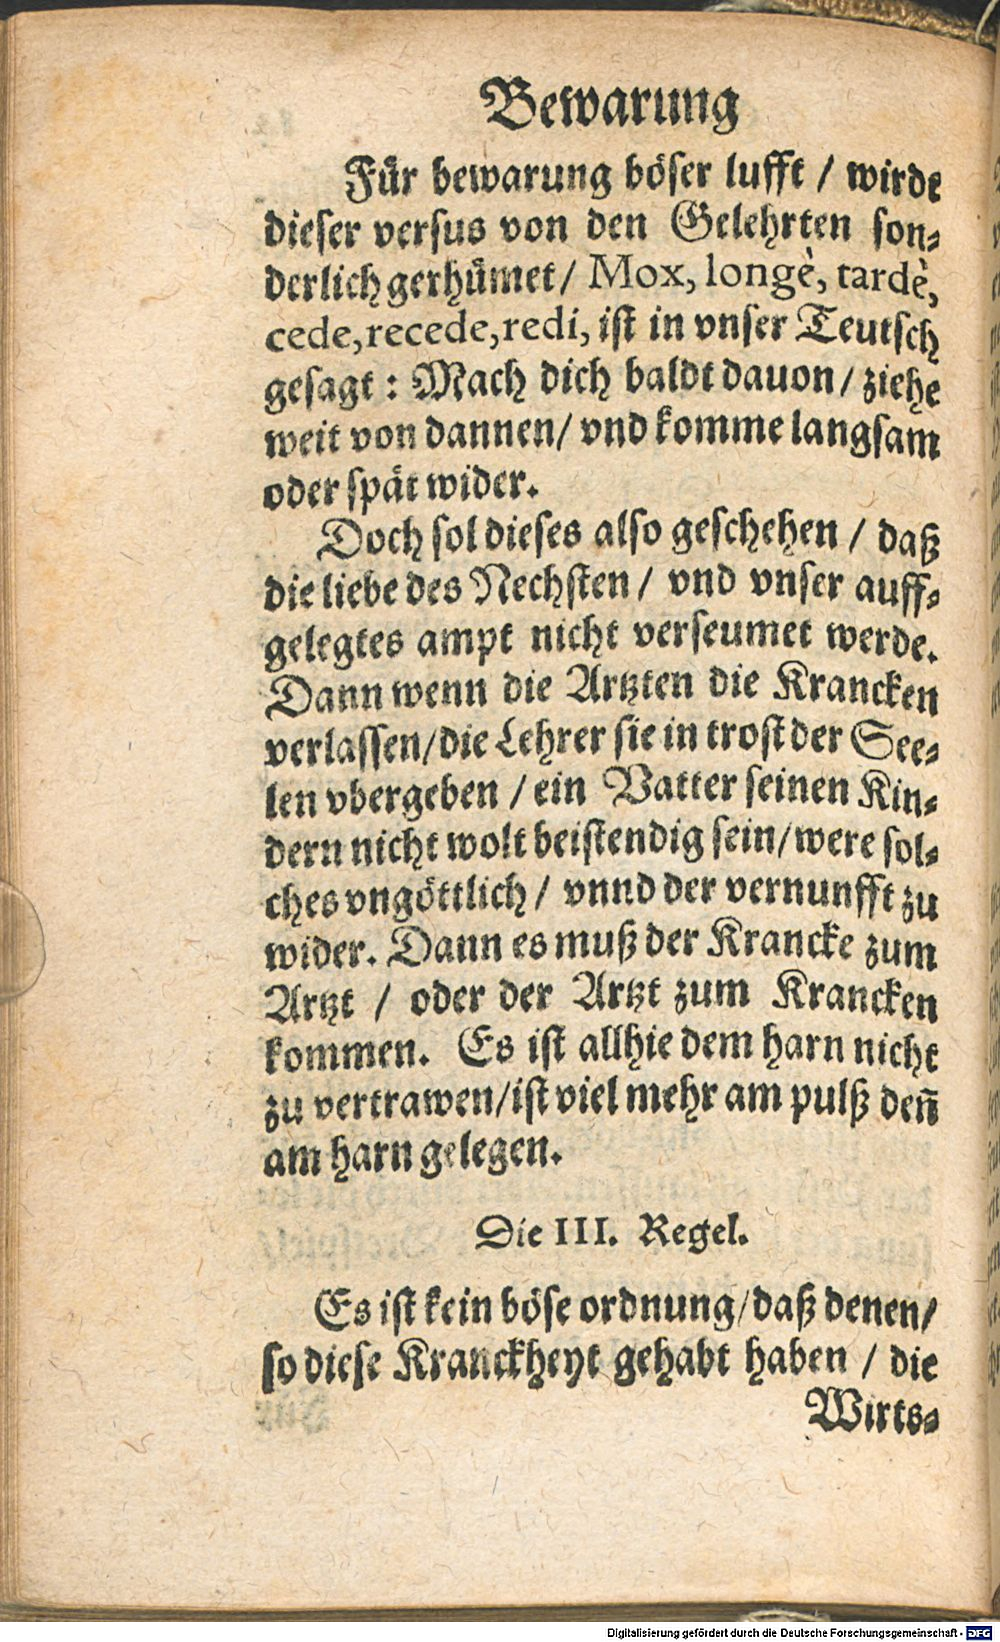 Bewarung
Für bewarung böser lufft / wirdt
dieser versus von den Gelehrten son-
derlich gerhümet / Mox, longè, tardè,
cede, recede, redi, ist in vnser Teutsch
gesagt : Mach dich baldt dauon / ziehe
weit von dannen / vnd komme langsam
oder spät wider.
Doch sol dieses also geschehen / daß
die liebe des Nechsten / vnd vnser auff-
gelegtes ampt nicht verseumet werde.
Dann wenn die Artzten die Krancken
verlassen / die Lehrer sie in trost der See-
len vbergeben / ein Vatter seinen Kin-
dern nicht wolt beistendig sein / were sol-
ches vngöttlich / vnnd der vernunfft zu
wider. Dann es muß der Krancke zum
Artzt / oder der Artzt zum Krancken
kommen. Es ist allhie dem harn nicht
zu vertrawen / ist viel mehr am pulß deñ
am harn gelegen.
Die III. Regel.
Es ist kein böse ordnung / daß denen /
so diese Kranckheyt gehabt haben / die
Wirts-
Digitalisierung gefördert durch die Deutsche Forschungsgemeinschaft - DFG